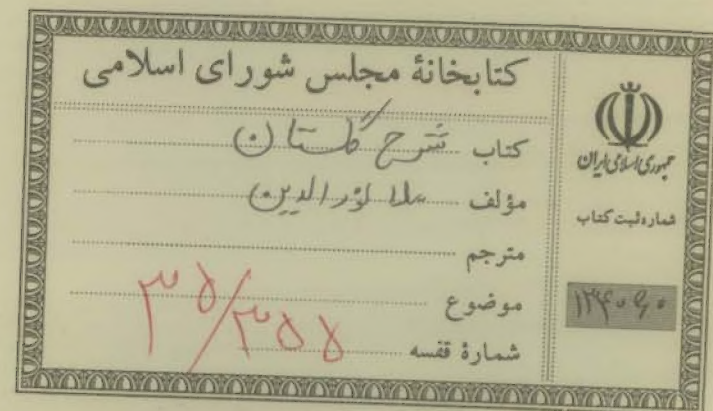 کتابخانهٔ مجلس شورای اسلامی
کتاب شرح گلستان
مؤلف ملا نورالدین
مترجم
موضوع
شمارهٔ قفسه
۳۵/۳۵۵
جمهوری اسلامی ایران
شماره ثبت کتاب
۱۳۴۰۹۰